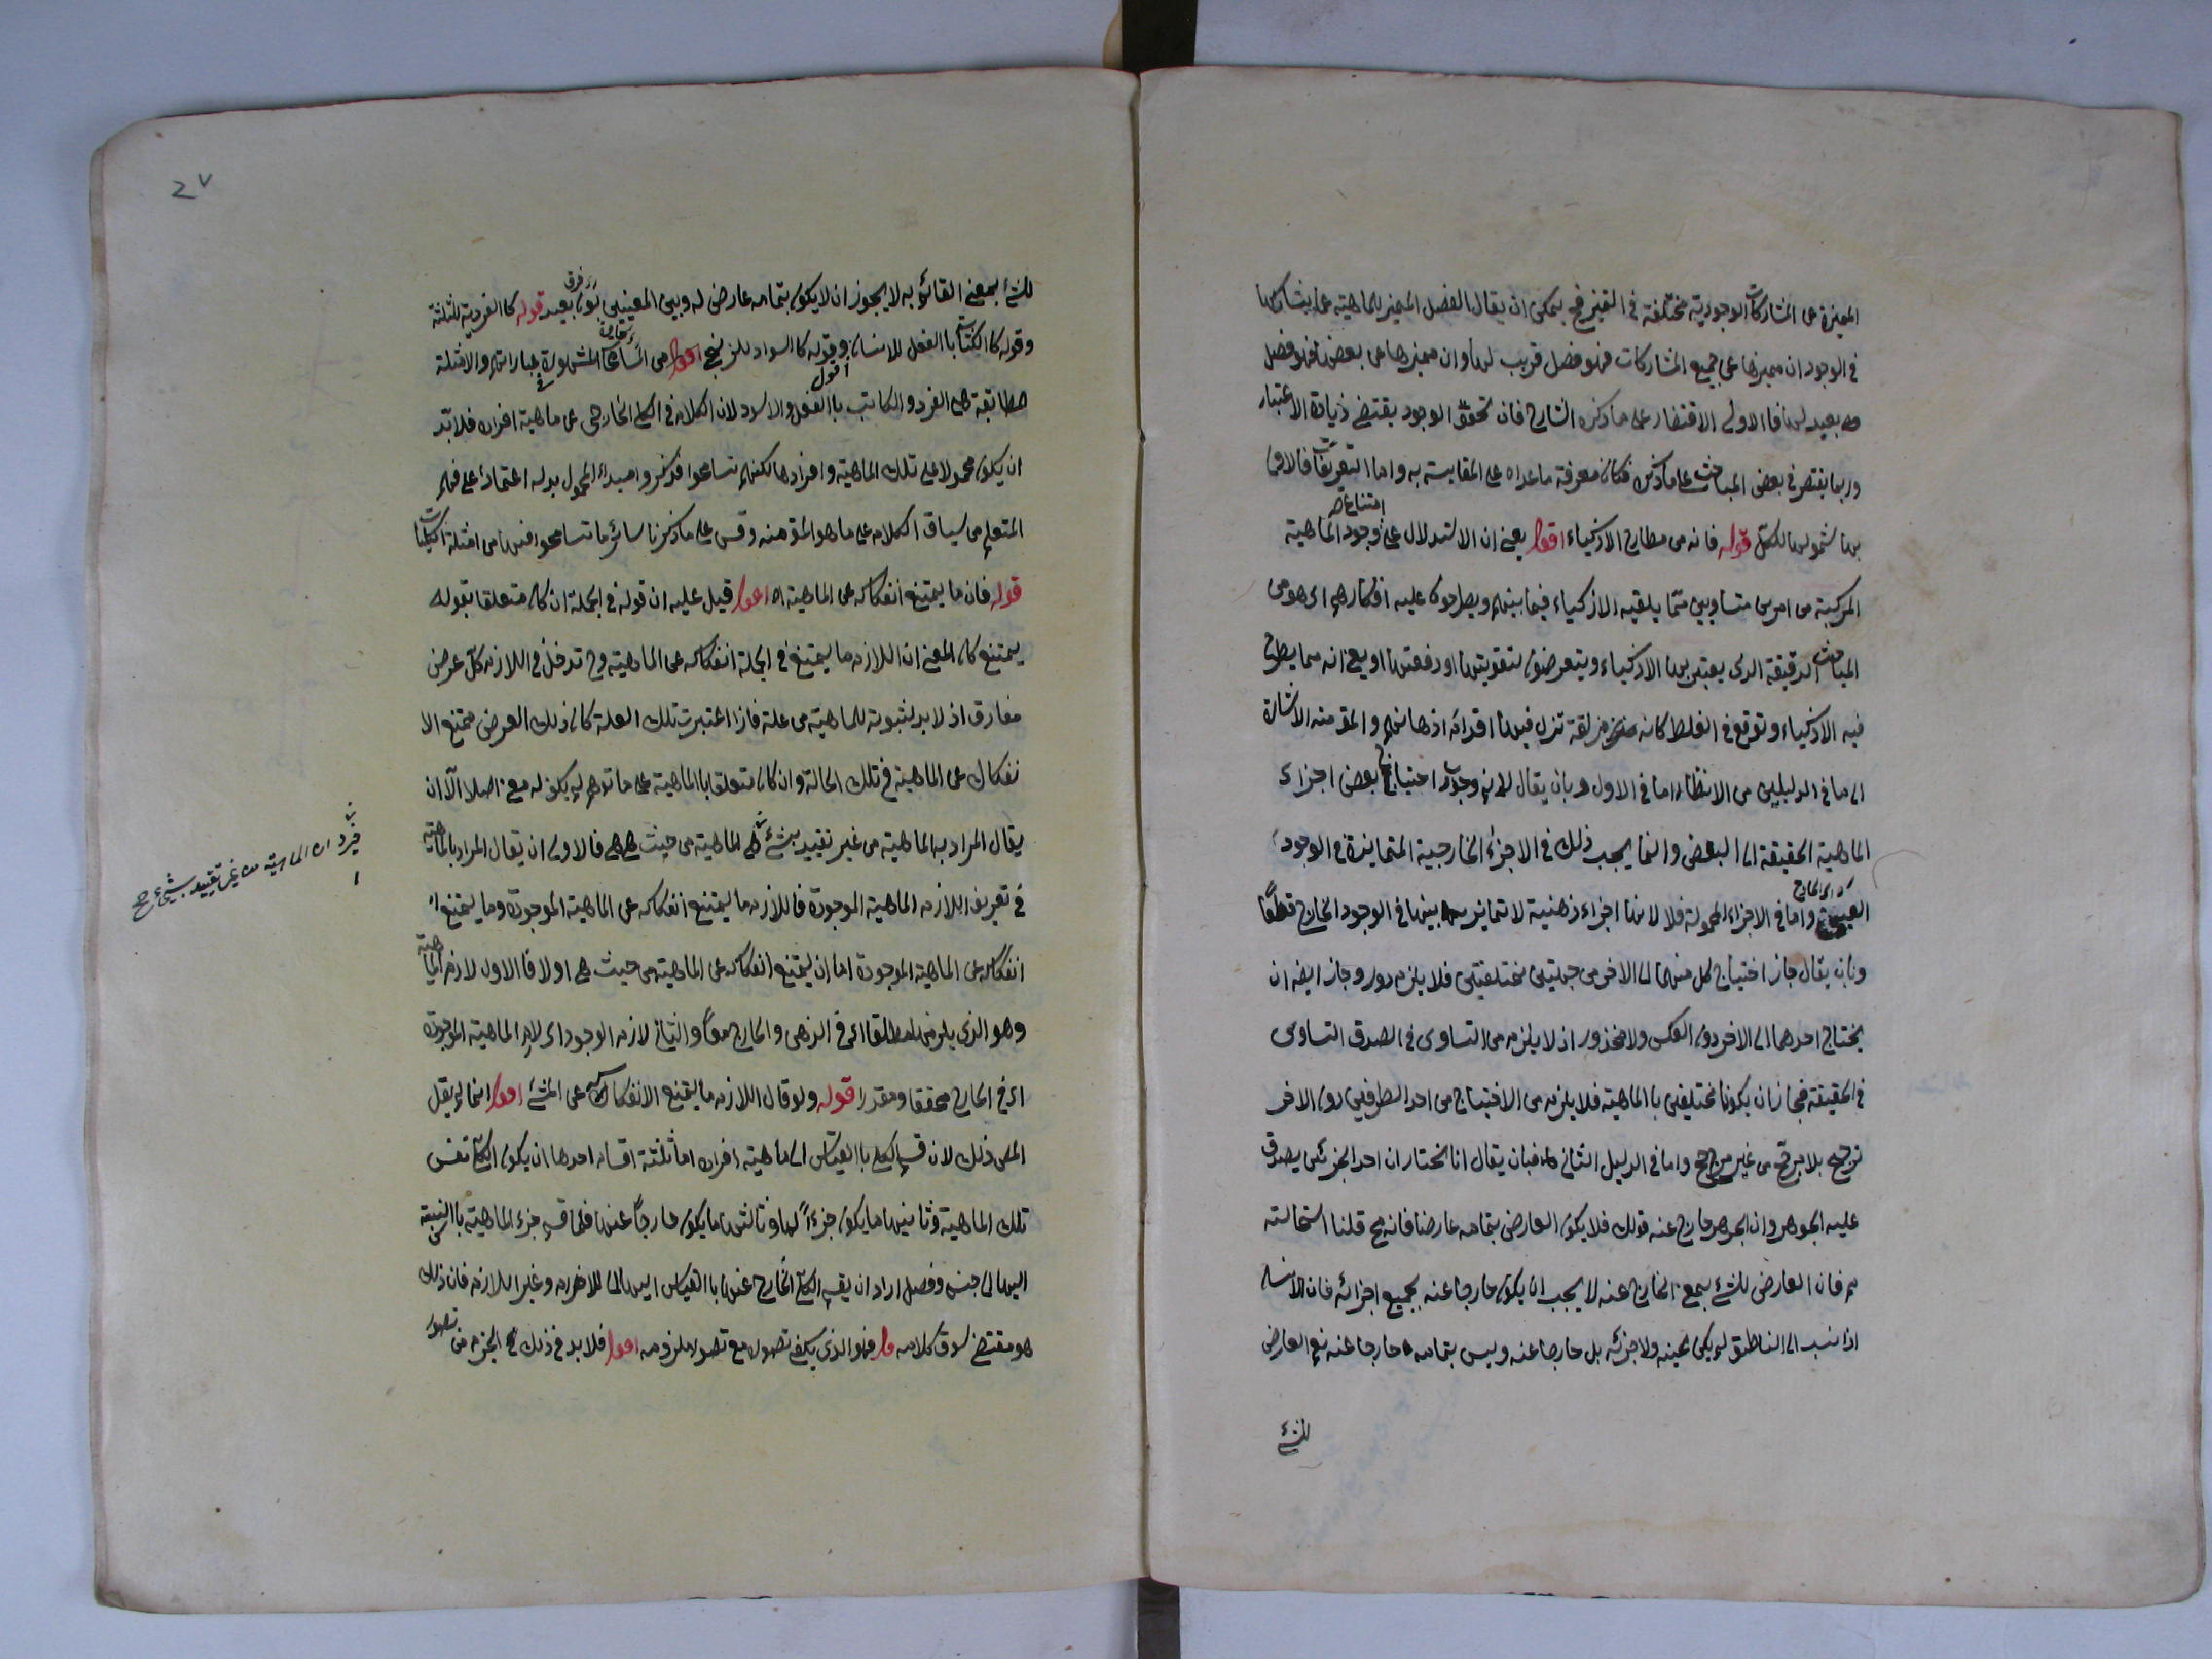 المميزة عن المشاركات الوجودية مختلفة في التميز فح يمكن ان يقال الفصل المميز للماهية عما يشاركها
في الوجود ان ميزها عن جميع المشاركات فهو فصل قريب لها وان ميزها عن بعضها فهو فصل
بعيد لها فالاولى الاقتصار على ما ذكره الشارح فان تحقق الوجود يقتضي زيادة الاعتبار
وربما يقتصر في بعض المباحث على ما ذكر فكان معرفة ما عداه على المقايسة به واما التعريفات فالاولى
بها شمولها للكل قوله فانه من مطارح الاذكياء اقول يعني ان الاستدلال على امتناع وجود الماهية
المركبة من امرين متساويين مما يلقيه الاذكياء فيما بينهم ويطرحون عليه افكارهم اي هو من
المباحث الدقيقة الذي يعتبر بها الاذكياء ويتعرضون لتقويتها او دفعها او يعني انه مما يطرح
فيه الاذكياء وتوقع في الغلط كانه مزلقة تزل فيها اقدام اذهانهم والمقصود منه الاشارة
الى ما في الدليلين من الانظار اما في الاول فبان يقال لا نم وجوب احتياج بعض اجزاء
الماهية الحقيقة الى البعض وانما يجب ذلك في الاجزاء الخارجية المتمايزة في الوجود
العيني اي الخارج واما في الاجزاء المحمولة فلا لانها اجزاء ذهنية لا تمايز بينها في الوجود الخارج قطعًا
وبان يقال جاز احتياج كل منهما الى الاخر من جهتين مختلفتين فلا يلزم دور وجاز ايضا ان
يحتاج احدهما الى الاخر دون العكس ولا محذور اذ لا يلزم من التساوى في الصدق التساوى
في الحقيقة فجاز ان يكونا مختلفين با الماهية فلا يلزم من الاحتياج من احد الطرفين دون الاخر
ترجيح بلا مرجح من غير مرجح واما في الدليل الثاني فبان يقال انا نختار ان احد الجزئين يصدق
عليه الجوهر وان الجوهر خارج عنه قولك فلا يكون العارض بتمامه عارضا فانه مح قلنا استحالته
مم فان العارض للشئ بمعنى الخارج عنه لا يجب ان يكون خارجا عنه بجميع اجزائه فان الانسان
اذا نسب الى الناطق لم يكن عينه ولا جزئه بل خارجا عنه وليس بتمامه خارجا عنه نعم العارض
للشئ
27
للشئ بمعنى القائم به لا يجوز ان لا يكون بتمامه عارض له وبين المعنيين بون فرق بعيد قوله كا الفردية للثلثة
وقوله كا الكتابة با الفعل للانسان وقوله كا السواد للزنجي اقول من المسامحات المشهورة في عباراتهم والامثلة
مطابقة هي الفرد والكاتب با الفعل والاسود لان الكلام في الكلي الخارجى عن ماهية افراده فلا بد
ان يكون محمولا على تلك الماهية وافرادها لكنهم تسامحوا فذكروا مبداء المحمول بدله اعتمادًا على فهم
المتعلم من سياق الكلام على ما هو المق منه وقس على ما ذكرنا سائر ما تسامحوا فيها من امثلة الكليات
قوله فان ما يمتنع انفكاكه عن الماهية اه اقول قيل عليه ان قوله في الجملة ان كان متعلقا بقوله
يمتنع كان المعنى ان اللازم ما يمتنع في الجملة انفكاكه عن الماهية وح تدخل في اللازم كل عرض
مفارق اذ لا بد لثبوته للماهية من علة فاذا اعتبرت تلك العلة كان ذلك العرض ممتنع الا
نفكاك عن الماهية في تلك الحالة وان كان متعلقا با الماهية على ما توهم لم يكن له معنى اصلا الا ان
يقال المراد به الماهية من غير تقييد بشئ لا الماهية من حيث هى هى فالاولى ان يقال المراد بالماهية
في تعريف اللازم الماهية الموجودة فاللازم ما يمتنع انفكاكه عن الماهية الموجودة وما يمتنع
انفكاكه عن الماهية الموجودة اما ان يمتنع انفكاكه عن الماهية من حيث هي او لا فا الاول لازم الماهية
وهو الذي يلزمها مطلقا اي في الذهن والخارج معًا والثاني لازم الوجود اي لازم الماهية الموجودة
اي في الخارج محققا ومقدرا قوله ولو قال اللازم ما يمتنع الانفكاكه عن الشئ اقول انما لم يقل
المص ذلك لان قسم الكلي با القياس الى ماهية افراده اما ثلثة اقسام احدها ان يكون الكلي نفس
تلك الماهية وثانيها ما يكون جزءًا لها وثالثها ما يكون خارجًا عنها فلما قسم جزء الماهية با النسبة
اليها الى جنس وفصل اراد ان يقسم الكلي الخارج عنها با القياس اليها الى اللازم وغير اللازم فان ذلك
هو مقتضى سوق كلامه قوله فهو الذي يكفي تصوره مع تصور ملزومه اقول فلا بد في ذلك الجزم من تصور
الماهية من غير تقييد بشئ صح